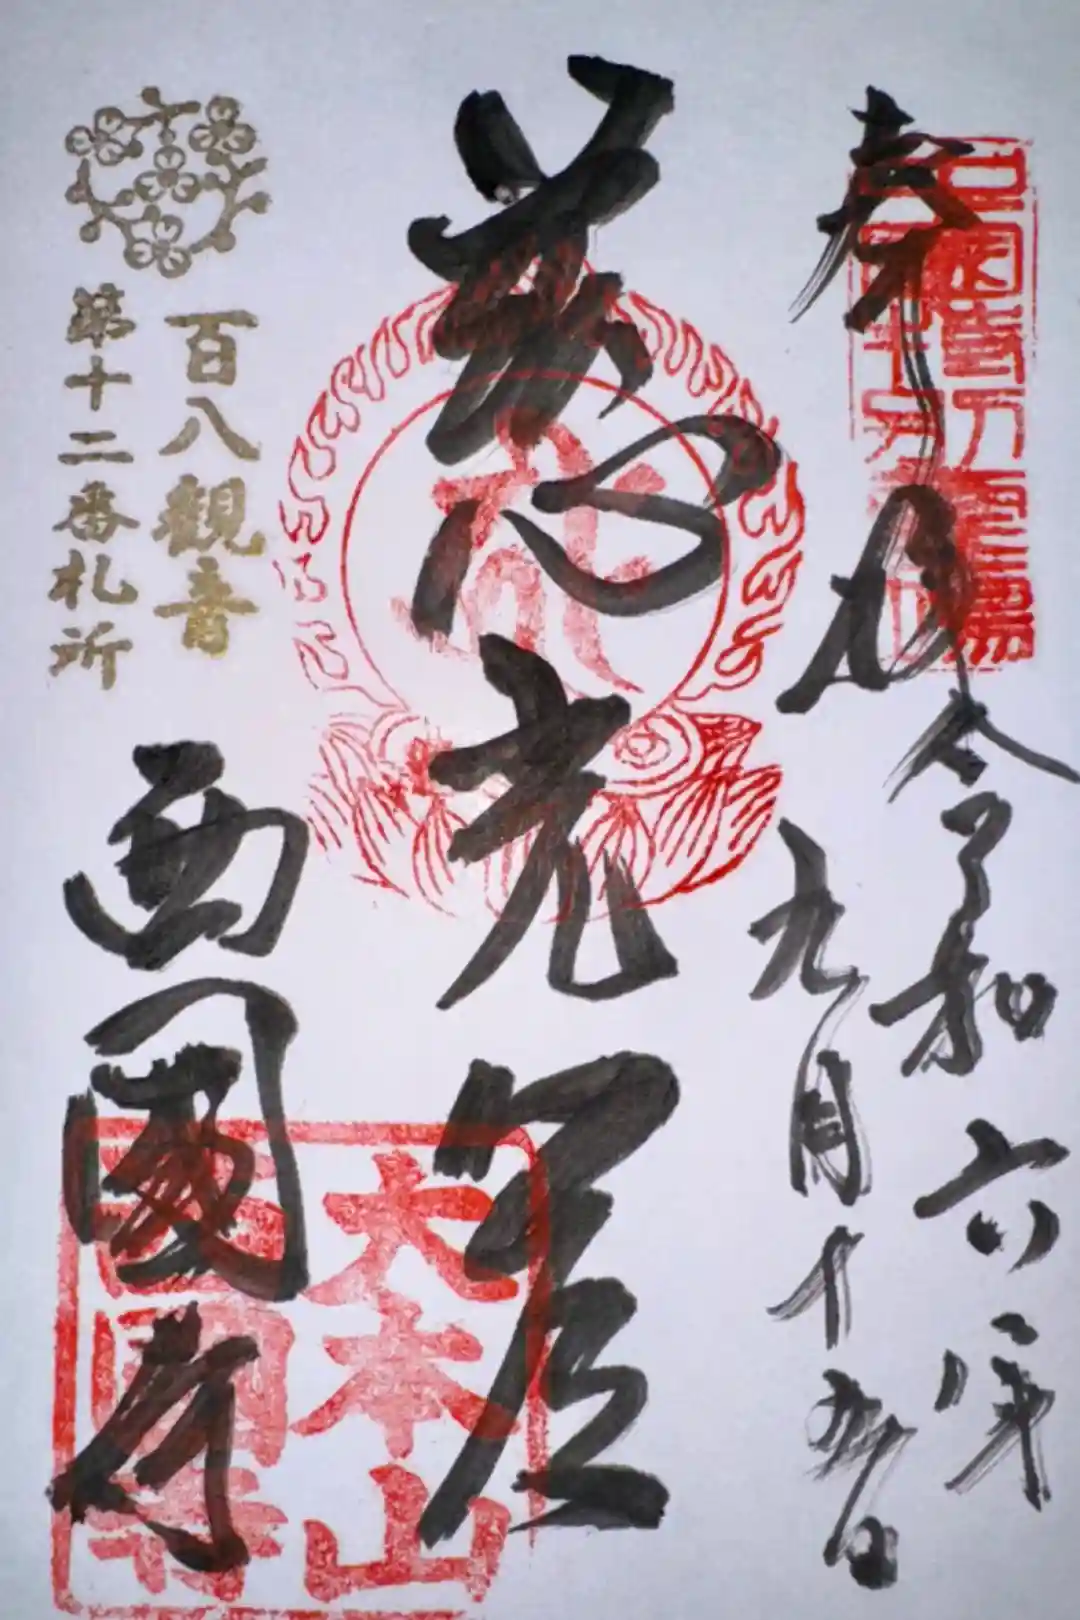 奉拝
令和六年
九月十九日
慈光殿
百八観音
第十二番札所
西國寺
大本山
西國寺